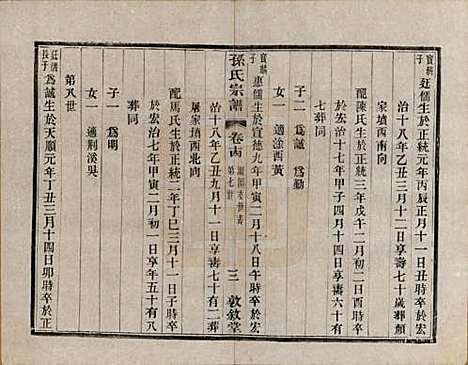 寶麟子
廷儒生於正統元年丙辰正月十一日丑時卒於宏
治十八年乙丑三月十二日享壽七十歲葬顏
家墳西南向
配陳氏生於正統三年戊午二月初二日酉時卒
於宏治十七年甲子四月十四日享壽六十有
七葬同
子二 為誠 為勤
女一 適涂酉黃
寶麟子
惠儒生於宣德九年甲寅二月十八日午時卒於宏
孫氏宗譜
卷十四
第七世
三
敦敘堂
治十八年乙丑九月十一日享壽七十有二葬
屠家墳西北向
配馬氏生於正統二年丁巳三月十一日子時卒
於宏治七年甲寅二月初一日享年五十有八
葬同
子一 為明
女一 適荊溪吳
第八世
廷儒長子
為誠生於天順元年丁丑三月十四日卯時卒於正